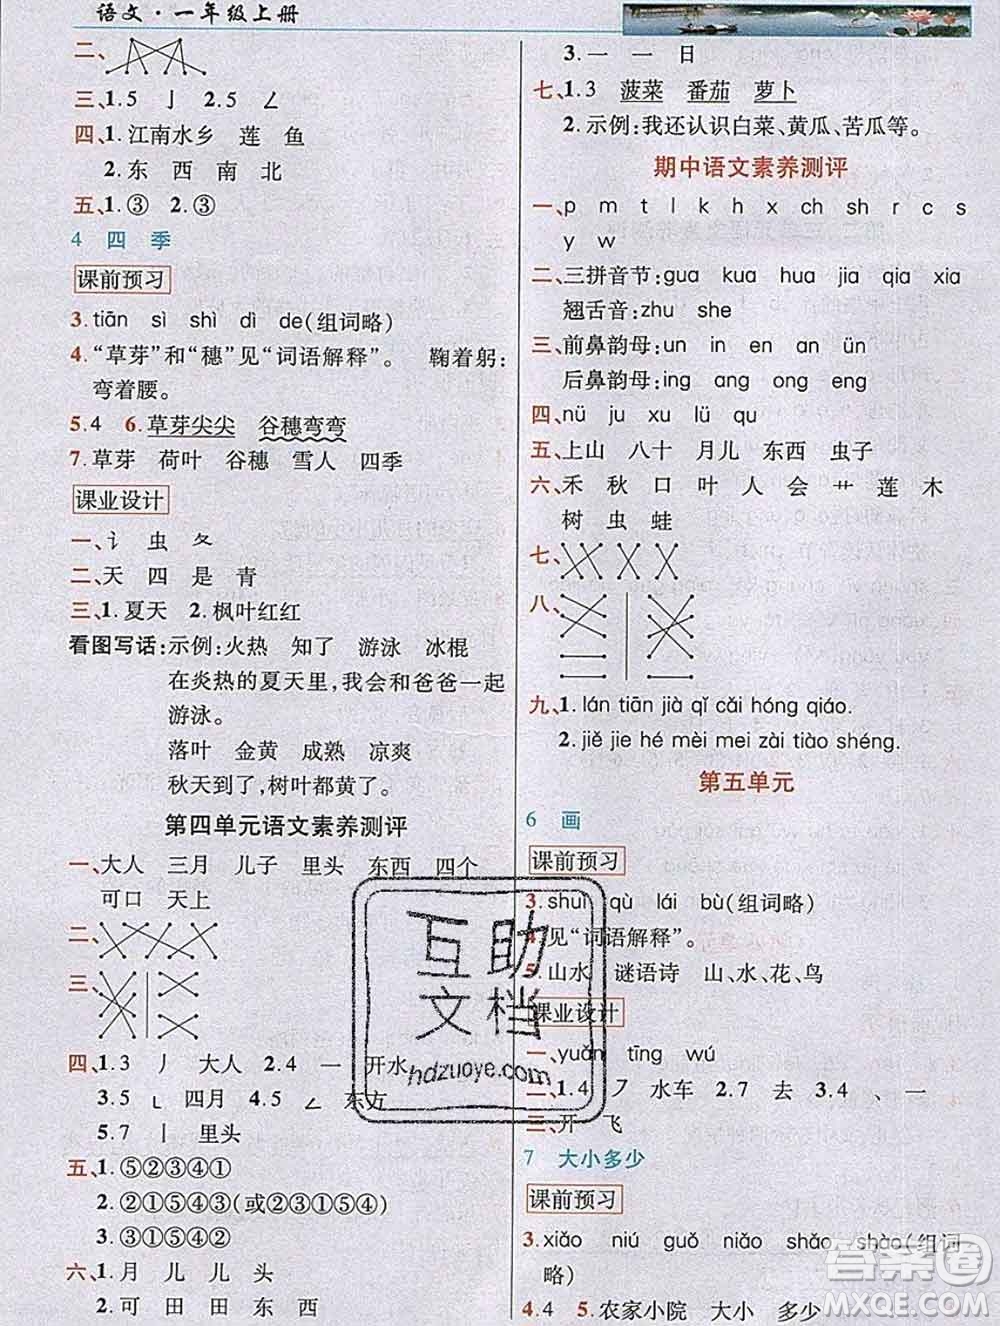 语文·一年级上册
二、
三、1.5 亅 2.5 ㄥ
四、1.江南水乡 莲 鱼
2.东 西 南 北
五、1.③ 2.③
4 四 季
课前预习
3.tiān sì shì dì de(组词略)
4.“草芽”和“穗”见“词语解释”。 鞠着躬:
弯着腰。
5.4 6.草芽尖尖 谷穗弯弯
7.草芽 荷叶 谷穗 雪人 四季
课业设计
一、讠 虫 夂
二、天 四 是 青
三、1.夏天 2.枫叶红红
看图写话:示例:火热 知了 游泳 冰棍
在炎热的夏天里,我会和爸爸一起
游泳。
落叶 金黄 成熟 凉爽
秋天到了,树叶都黄了。
第四单元语文素养测评
一、大人 三月 儿子 里头 东西 四个
可口 天上
二、
三、
四、1.3 丿 大人 2.4 一 开水
3.5 ㄴ 四月 4.5 ㄥ 东方
5.7 丨 里头
五、1.⑤②③④①
2.②①⑤④③(或②③①⑤④)
3.③①⑤④②
六、1.月 儿 儿 头
2.可 田 田 东 西
3.一 一 日
七、1.3 菠菜 番茄 萝卜
2.示例:我还认识白菜、黄瓜、苦瓜等。
期中语文素养测评
一、p m t l k h x ch sh r c s
y w
二、三拼音节:gua kua hua jia qia xia
翘舌音:zhu she
三、前鼻韵母:un in en an ün
后鼻韵母:ing ang ong eng
四、nü ju xu lü qu
五、上山 八十 月儿 东西 虫子
六、禾 秋 口 叶 人 会 艹 莲 木
树 虫 蛙
七、
八、
九、1.lán tiān jià qǐ cǎi hóng qiáo.
2.jiě jie hé mèi mei zài tiào shéng.
第五单元
6 画
课前预习
3.shuǐ qù lái bù(组词略)
4.见“词语解释”。
5.山水 谜语诗 山、水、花、鸟
课业设计
一、yuǎn tīng wú
二、1.4 ㇇ 水车 2.7 去 3.4 、 一
三、开 飞
7 大小多少
课前预习
3.xiǎo niú guǒ niǎo shǎo shào(组词
略)
4.4 5.农家小院 大小 多少
互助
文档
hdzuoye.com
答案圈
MXQE.COM